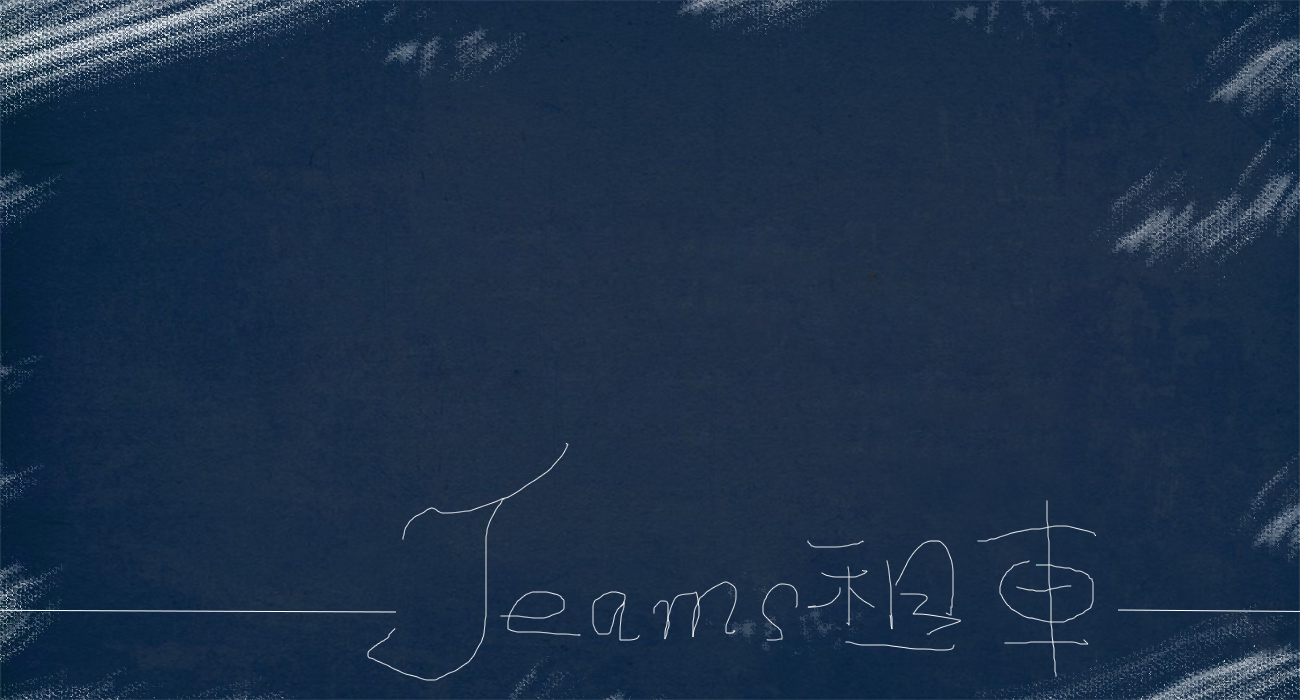 Jeams租車